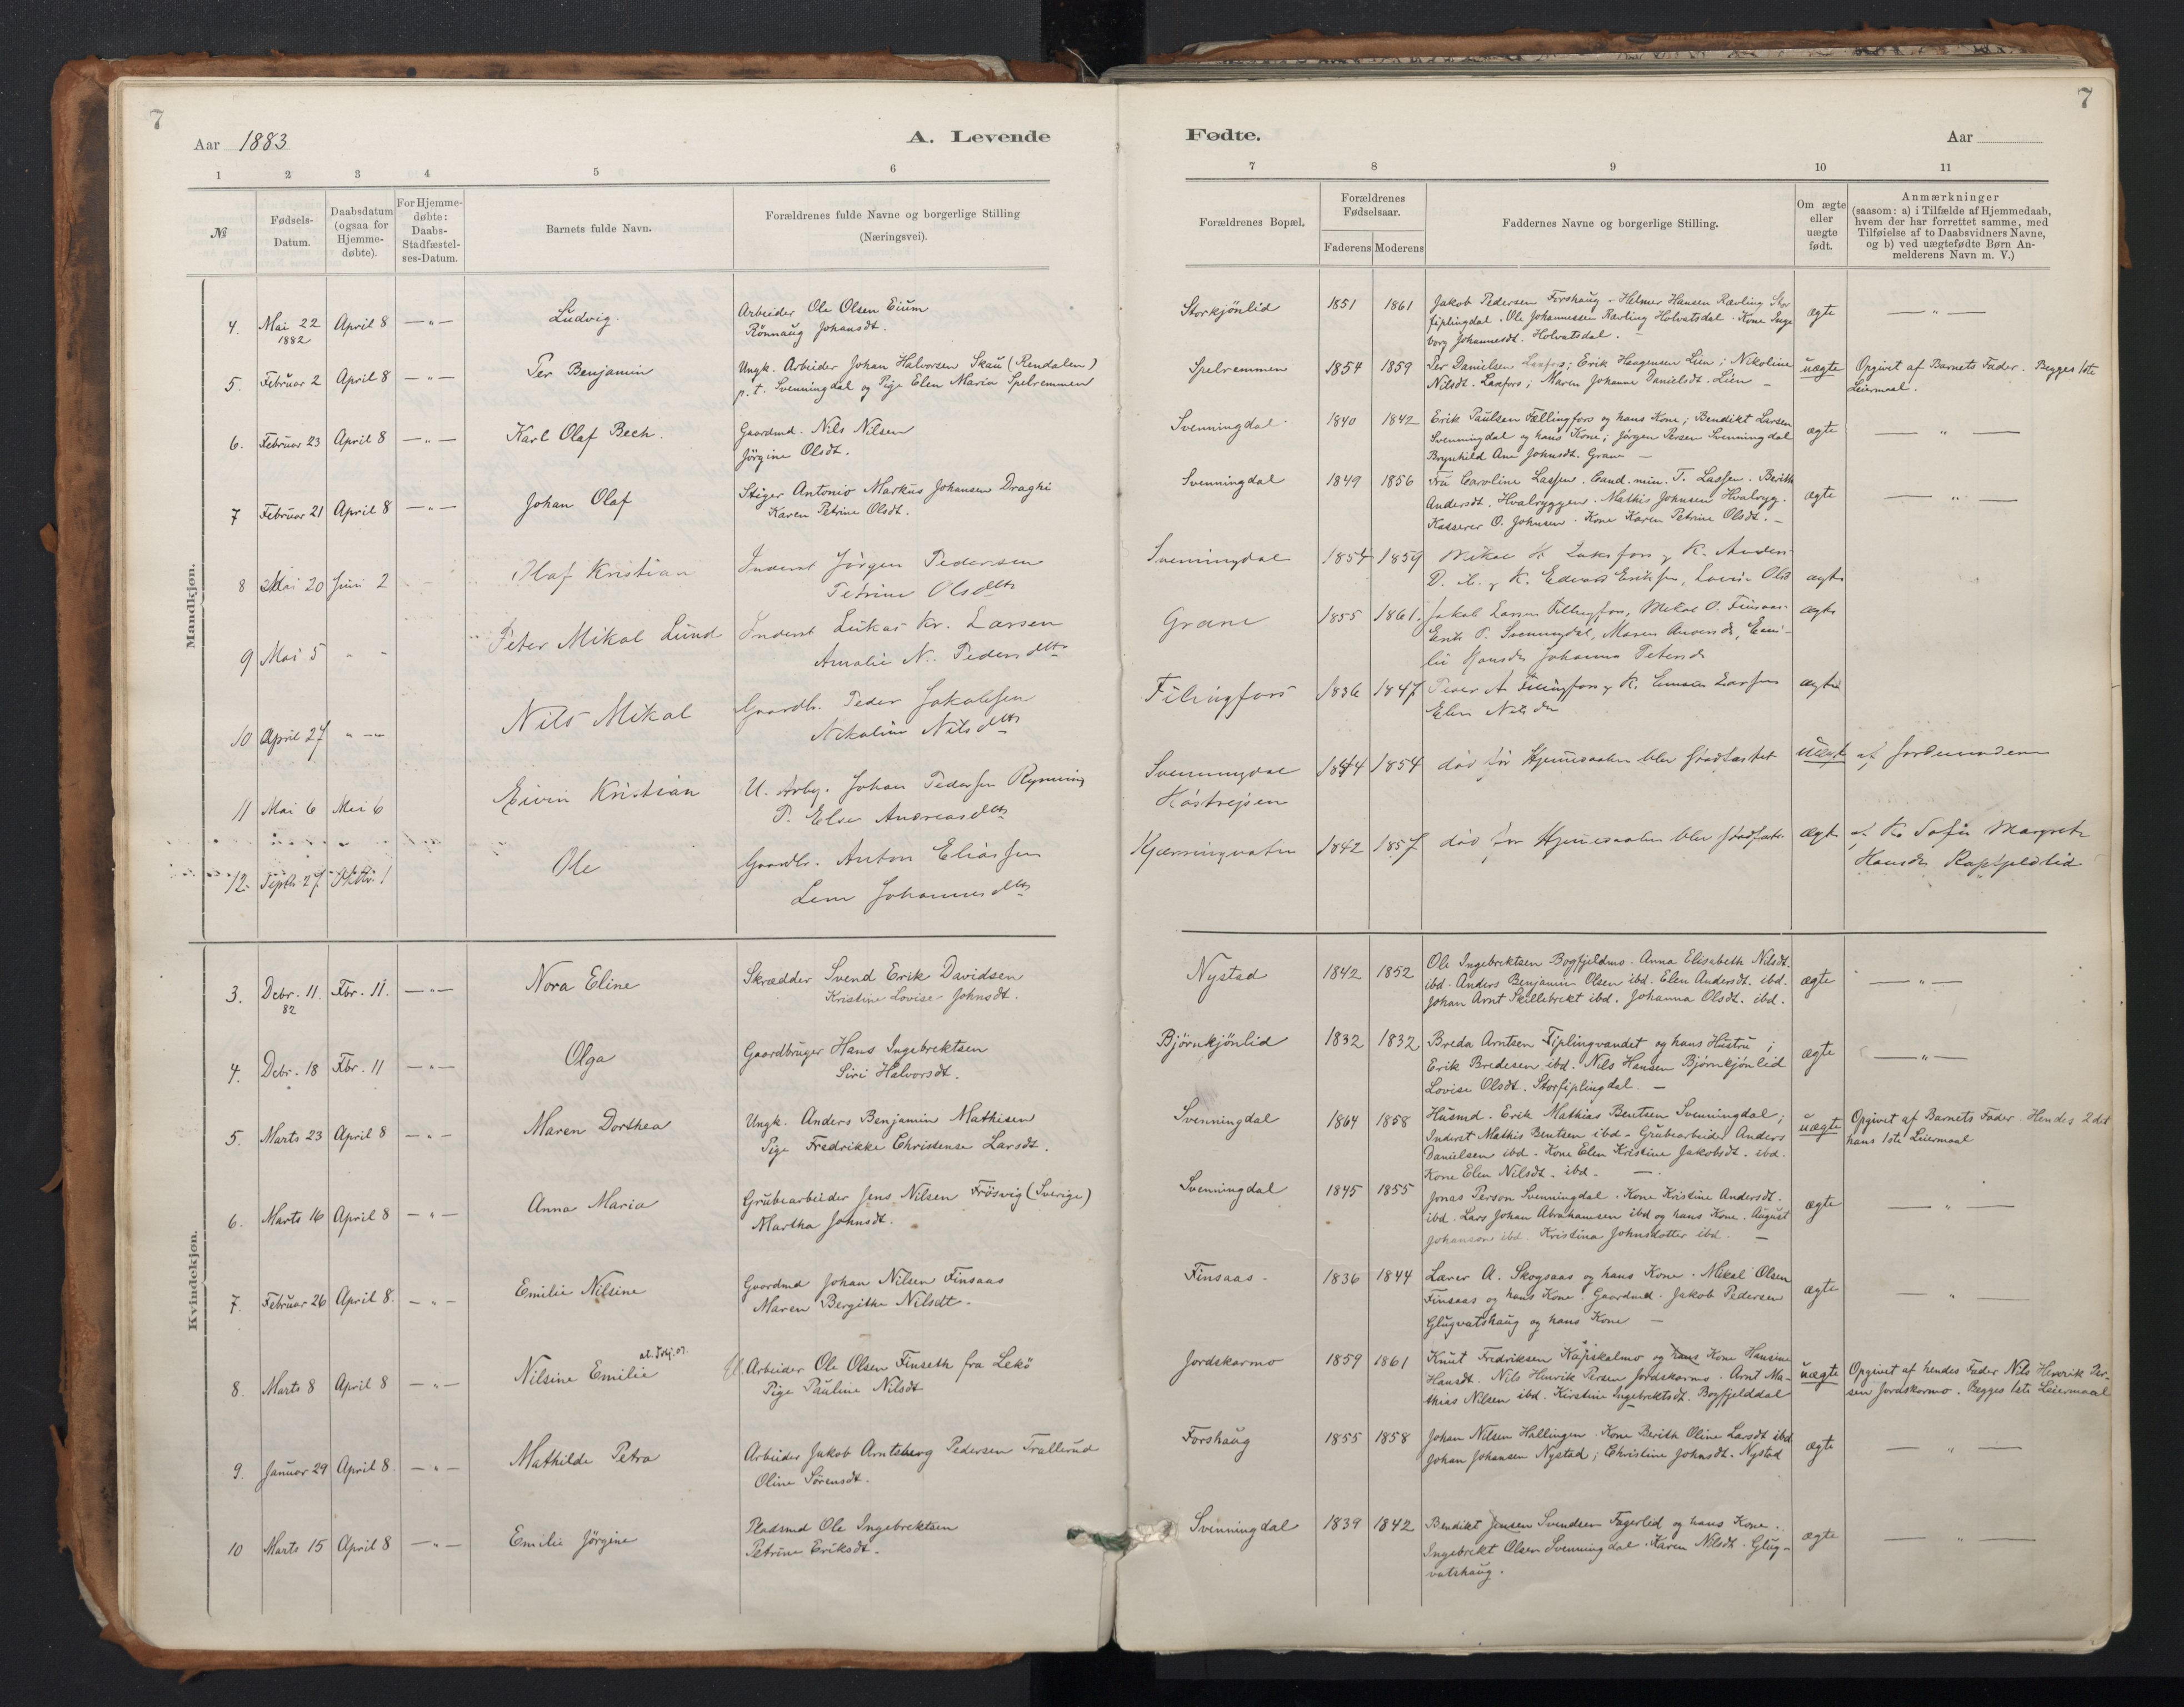 7
Aar 1883
A. Levende
1 2 3 4 5 6
№
Fødsels-Datum.
Daabsdatum (ogsaa for Hjemme-døbte).
For Hjemme-døbte: Daabs-Stadfæstel-ses-Datum.
Barnets fulde Navn.
Forældrenes fulde Navne og borgerlige Stilling
(Næringsvei).
Mandkjøn.
4. Mai 22 1882 April 8 — " — Ludvig. Arbeider Ole Olsen Eium
Rönnaug Johansdt.
5. Februar 2 April 8 — " — Per Benjamin Ungk. Arbeider Johan Halvorsen Skau (Rendalen)
p. t. Svenningdal og Pige Elen Maria Spelremmen
6. Februar 23 April 8 — " — Karl Olaf Bech. Gaardmd. Nils Nilsen
Jörgine Olsdt.
7 Februar 21 April 8 — " — Johan Olaf Stiger Antonio Markus Johansen Draghi
Karen Petrine Olsdt.
8 Mai 20 Juni 2 Olaf Kristian Inderst Jørgen Pedersen
Petrine Olsdtr
9 Mai 5 " " Peter Mikal Lund Inderst Lukas Kr. Larsen
Amalie N. Pedersdtr
10 April 27 " — Nils Mikal Gaardb. Peder Jakobsen
Nikoline Nilsdtr
11 Mai 6 Mai 6 Eivin Kristian U. Arb. Johan Pedersen Rynning
P. Else Andreasdtr
12. Septb. 27 Oktbr. 1 Ole Gaardbr. Anton Eliassen
Lena Johannesdtr
Kvindekjøn.
3. Debr. 11. 82 Fbr. 11. — " — Nora Eline Skrædder Svend Erik Davidsen
Kristine Lovise Johnsdt.
4. Debr. 18 Fbr. 11 — " — Olga Gaardbruger Hans Ingebrektsen
Siri Halvorsdt.
5. Marts 23 April 8 — " — Maren Dorthea Ungk. Anders Benjamin Mathisen
Pige Fredrikke Christense Larsdt.
6. Marts 16 April 8 — " — Anna Maria Grubearbeider Jens Nilsen Frösvig (Sverige)
Martha Johnsdt.
7. Februar 26 April 8. — " — Emilie Nilsine Gaardmd Johan Nilsen Finsaas
Maren Bergithe Nilsdt.
8. Marts 8 April 8 — " — Nilsine Emilie U. Arbeider Ole Olsen Finseth fra Lekö
Pige Pauline Nilsdt
9. Januar 29 April 8. — " — Mathilde Petra Arbeider Jakob Arntsberg Pedersen Trallerud
Oline Sörensdt.
10 Marts 15 April 8 — " — Emilie Jörgine Pladsmd Ole Ingebrektsen
Petrine Eriksdt.
7
Fødte.
Aar
7 8 9 10 11
Forældrenes Bopæl.
Forældrenes Fødselsaar.
Faderens Moderens
Faddernes Navne og borgerlige Stilling.
Om ægte eller uægte født.
Anmærkninger
(saasom: a) i Tilfælde af Hjemmedaab,
hvem der har forrettet samme, med
Tilføielse af to Daabsvidners Navne,
og b) ved uægtefødte Børn An-
melderens Navn m. V.)
Storkjönlid 1851 1861 Jakob Pedersen Forshaug. Helmer Hansen Rævling Stor
fiplingdal. Ole Johannessen Rævling Holvatsdal. Kone Inge
borg Johannesdt. Holvatsdal. ægte — " —
Spelremmen 1854 1859 Per Danielsen Laxfors; Erik Haagensen Lien; Nikoline
Nilsdt. Laxfors; Maren Johanne Danielsdt. Lien — uægte Opgivet af Barnets Fader. Begges 1ste
Leiermaal.
Svenningdal 1840 1842 Erik Paulsen Fællingfors og hans Kone; Bendikt Larsen
Svenningdal og hans Kone; Jørgen Persen Svenningdal
Brynhild Ane Johnsdt. Grane — ægte — " —
Svenningdal 1849 1856 Fru Caroline Lassen. Cand. min. T. Lassen. Berith
Andersdt. Hvalryggen. Mathis Johnsen Hvalryg.
Kasserer O. Johnsen. Kone Karen Petrine Olsdt. — ægte — " —
Svenningdal 1854 1859 Mikal H. Laksfors og K. Anders
D. L. og K. Edvard Eriksen, Lovise Olsd ægte
Grane 1855 1861. Jakob Larsen Fellingfors, Mikal O. Finsaas
Erik P. Svenningdal, Maren Andersdr, Emi-
lie Hansdr Johanna Petersdr ægte
Fillingfors 1836 1847 Peder A Fillingfors og K. Larsen
Elen Nilsdr ægte
Svenningdal 1844 1854 død før Hjemmedaaben blev stadfæstet uægte af Jordmoderen
Kjærringvatn 1842 1857 død før Hjemmedaaben blev stadfæst ægte af K. Sofie Margrete
Hansdr Kapfjeldlid
Nystad 1842 1852 Ole Ingebrektsen Bogfjeldmo. Anna Elisabeth Nilsdt.
ibd. Anders Benjamin Olsen ibd. Elen Andersdt. ibd.
Johan Arnt Skillebrekt ibd. Johanna Olsdt. ibd. ægte — " —
Bjørnkjönlid 1832 1832 Breda Arntsen Fiplingvandet og hans Hustru;
Erik Bredesen ibd. Nils Hansen Bjørnkjönlid
Lovise Olsdt. Storfiplingdal. — ægte — " —
Svenningdal 1864 1858 Husmd. Erik Mathias Bentsen Svenningdal;
Inderst Mathis Bentsen ibd. Grubearbeider Anders
Danielsen ibd. Kone Elen Kristine Jakobsdt. ibd.
Kone Elen Nilsdt. ibd. — uægte Opgivet af Barnets Fader. Hendes 2det
hans 1ste Leiermaal
Svenningdal 1845 1855 Jonas Person Svenningdal. Kone Kristine Andersdt.
ibd. Lars Johan Abrahamsen ibd og hans Kone. August
Johanson ibd. Kristina Johnsdotter ibd. — ægte — " —
Finsaas. 1836 1844 Lærer A. Skogsaas og hans Kone. Mikal Olsen
Finsaas og hans Kone. Gaardmd. Jakob Pedersen
Glugvatshaug og hans Kone — ægte — " —
Jordskarmo 1859 1861 Knut Fredriksen Kapskalmo og hans Kone Hansine
Hansdt. Nils Henrik Persen Jordskarmo. Arnt Ma-
thias Nilsen ibd. Kirstine Ingebrektsdt. Bogfjelddal uægte Opgivet af hendes Fader Nils Henrik Per-
sen Jordskarmo. Begges 1ste Leiermaal
Forshaug 1855 1858 Johan Nilsen Hallingen. Kone Berith Oline Larsdt ibd
Johan Johansen Nystad; Christine Johnsdt. Nystad ægte — " —
Svenningdal 1839 1842 Bendikt Jensen Svendsen Fagerlid og hans Kone.
Ingebrikt Olsen Svenningdal. Karen Nilsdt. Glug-
vatshaug. ægte — " —